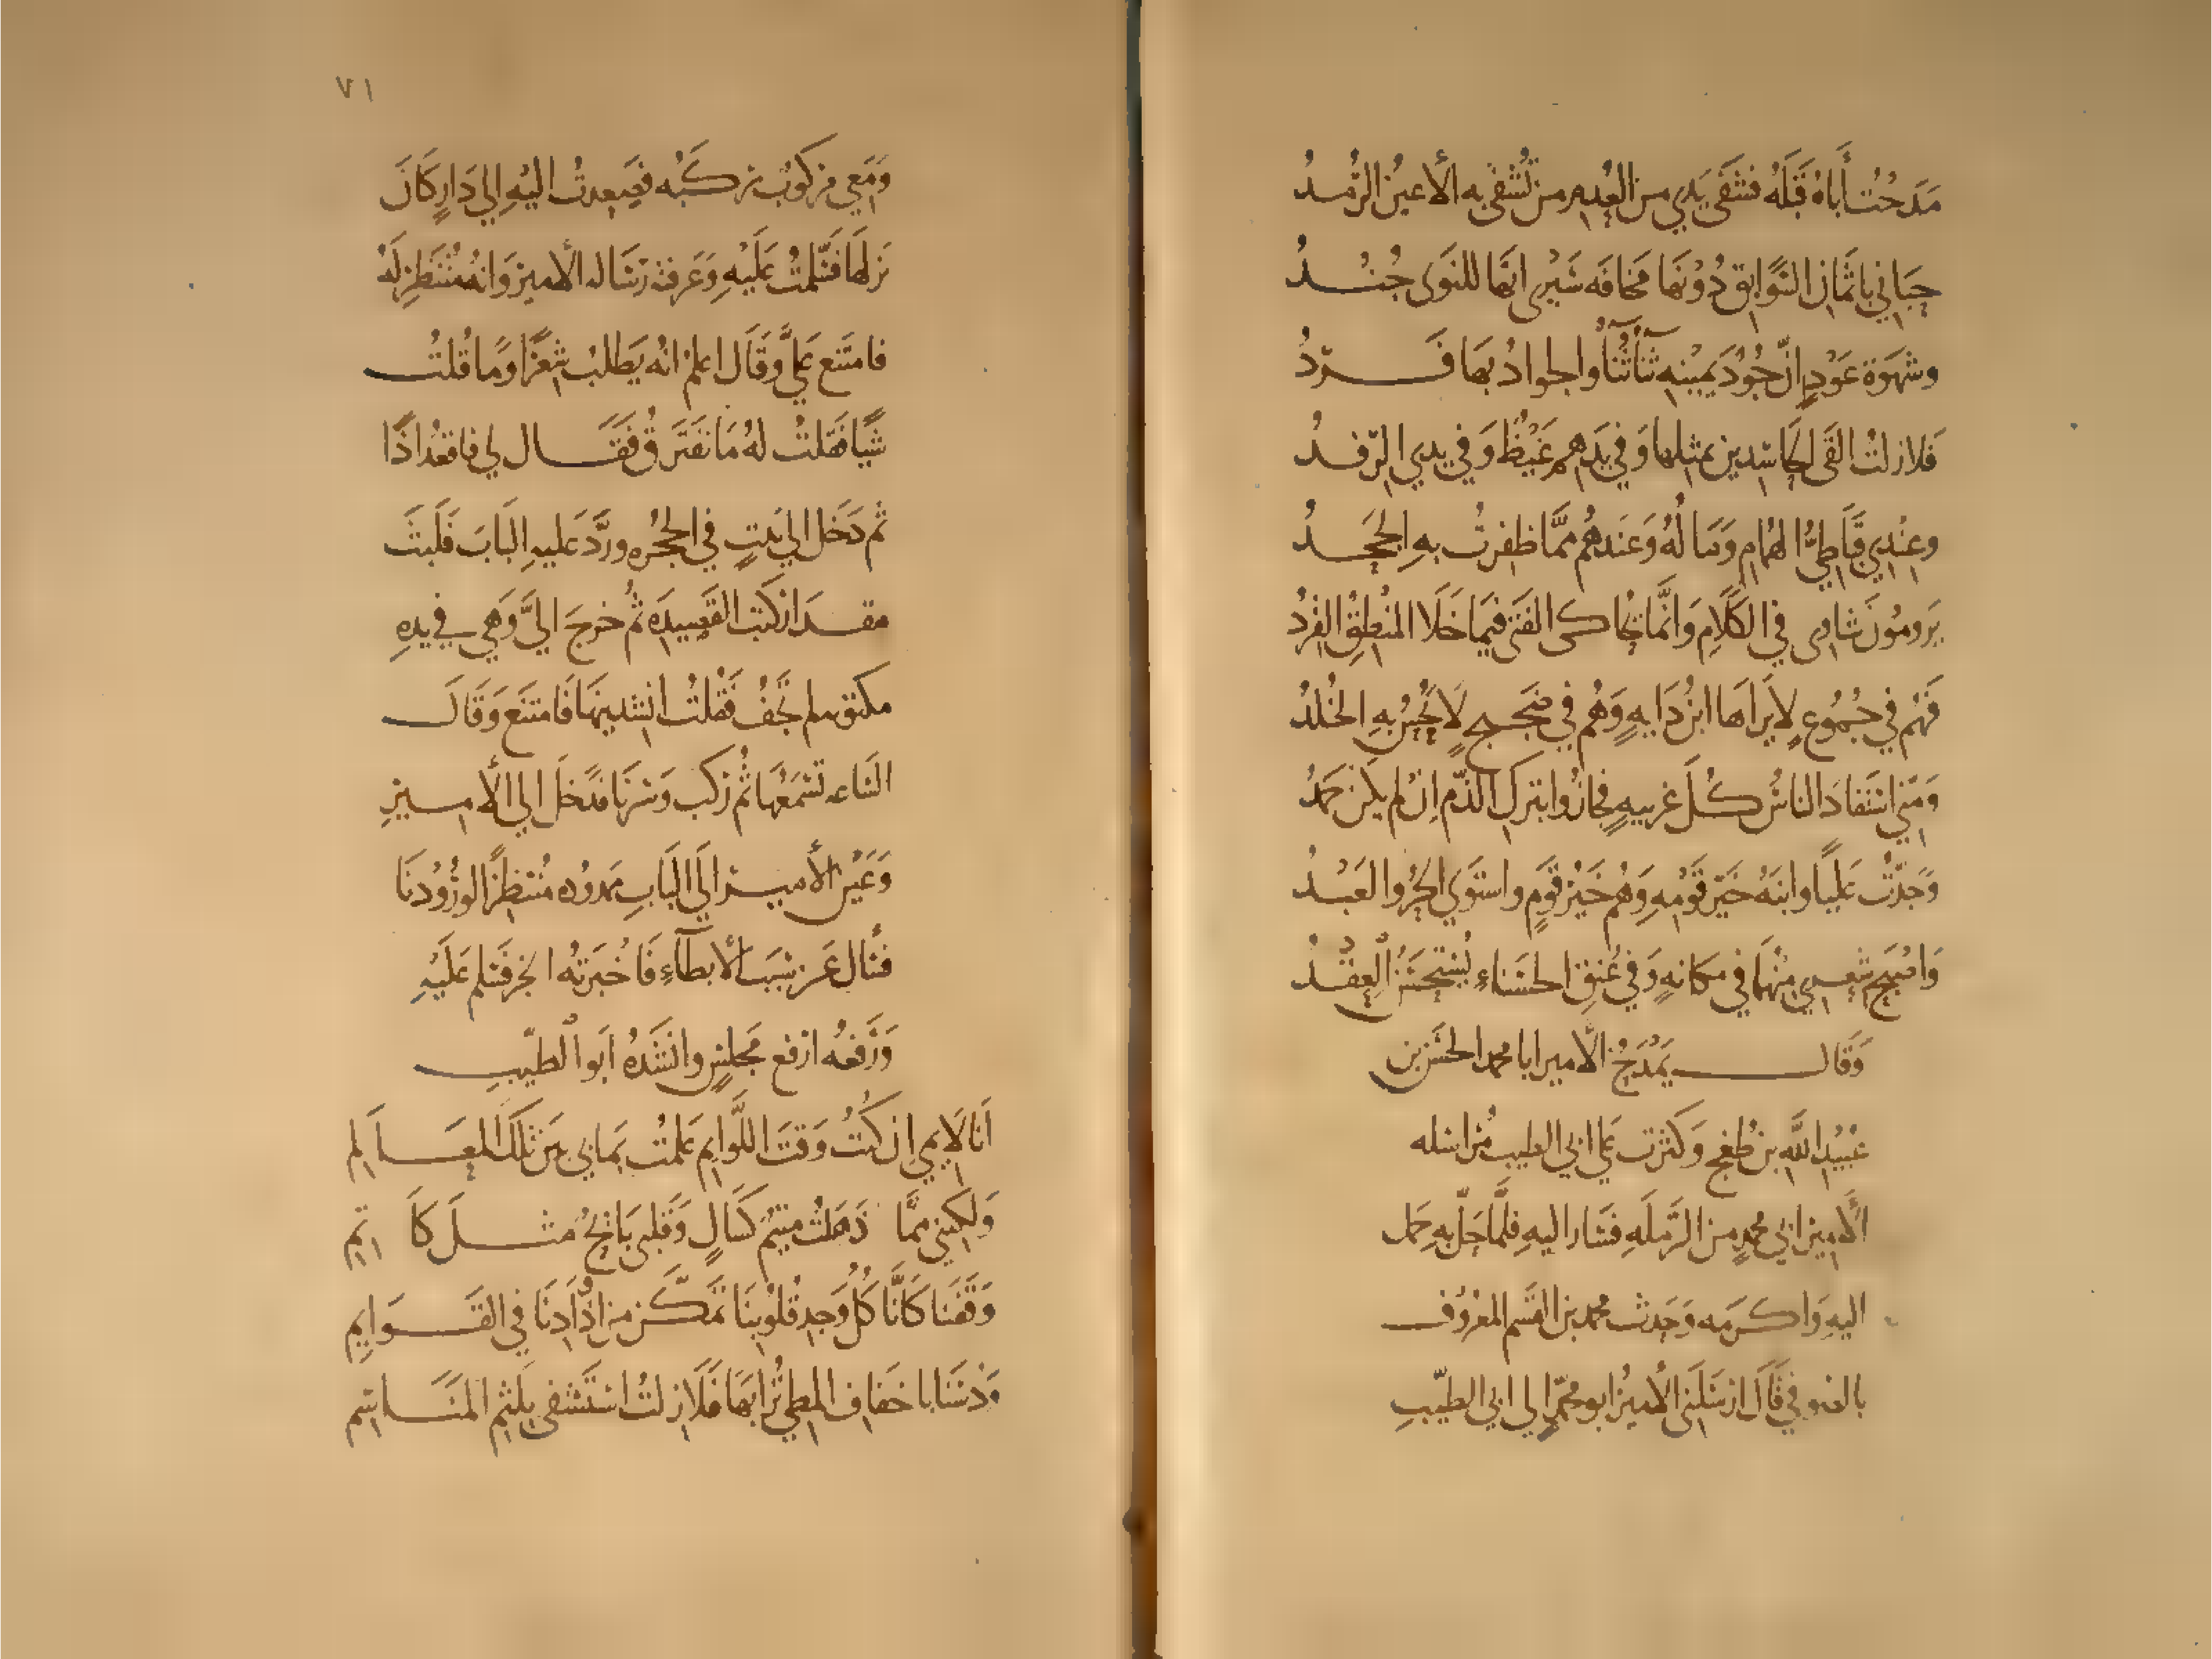 مَدَحْتُ أَبَاهُ قَبْلَهُ فَشَفَى يَدِي من العُدمِ من تُشفَى به الأعينُ الرُّمدُ
حَبَاني باثمَانِ السَّوَابِق دُوْنَهَا مَخَافَه سَيْرِى انهَا للنَوَى جُنْدُ
وشهوَة عَوْدٍ انَّ جُوْدَ يَمِيْنِهِ ثُنَآءٌ ثُنَآءٌ والجوادُ بهَا فَردُ
فَلا زلتُ القَى الحَاسِدِين بمثلِهَا وَفي يَدِهِم غَيْظٌ وَفي يدي الرِّفدُ
وعِنْدِي قَبَاطِيُّ الهُمَامِ وَمَالُهُ وَعَندَهُم مِمَّا ظفِرتُ بهِ الجَحَدُ
يَرومُونَ شاوِى في الكَلَامِ وَانَّمَا يُحَاكى الفَتَى فيمَا خَلَا المَنْطِقُ القِرْدُ
فَهُم في جُمُوعٍ لا يَراهَا ابنُ دَايهٍ وَهُم في ضَجيجٍ لَا يُحِسُ بهِ الخُلْدُ
وَمنِّي استَفَادَ الناسُ كُلَّ غَرِيبهٍ فجَازُوا بتركِ الذّمِ اِن لم يكن حَمْدُ
وَجَدْتُ عَلِياً وابنَهُ خَيْرَ قَوْمِهِ وَهُم خَيْرُ قَوْمٍ واستَوَى الحُرُّ والعَبْدُ
وَاصْبَحَ شعري مِنْهُمَا في مَكَانهٍ وَفي عُنقِ الحَسنَاءِ يُسْتَحسَنُ العِقْدُ
وَقَال يَمْدَحُ الأمير ابا محمد الحسَن بن
عُبَيْدِ اللَّهِ بن طُغجٍ وَكثرَت عَلى ابي الطيب مُرَاسَله
الأَميرِ ابي محمدٍ من الرَّمْلَهِ فسَار اليهِ فلمَّا حَلّ بهِ حَمل
اليهِ وَاكرَمَه وَحَدث محمد بن القسَم المعرُوف
بالصوفي قَالَ ارسَلَنى الأميرُ ابو محمّدٍ الى ابي الطيّبِ
٧١
وَمَعِي مركوبٌ يركَبُه فصَعِدتُ اليْهِ اِلي دَارٍ كَانَ
نزلهَا فسَلمتُ عَلَيْهِ وَعَرفته رسَاله الأمير وَانهُ مُنتَظِر لَهُ
فامتنَع عَليَّ وَقَالَ اعلم انهُ يَطلبُ شِعْرًا وَمَا قُلتُ
شَيًا فَقلتُ لهُ مَا نَفتَرَقُ فَقَال لي فاقعُد اذًا
ثم دَخَلَ الي بَيتٍ في الحُجْره وَردَّ عَليهِ البَابَ فَلَبثَ
مقدَار كَتب القَصِيدَه ثمُ خرجَ اليَّ وَهي في يدهِ
مكتوبه لم تجفَّ فَقُلتُ انشدِنيهَا فَامتنَع وَقَالَ
السَاعه تسْمَعُهَا ثُم ركب وَسِرنَا فدَخلَ الي الأمير
وَعَيْن الأمير اِلَي البَابِ ممدوده مُنْتظِرًا لورُوْدنَا
فسَال عَن سَبَب الأبطآءِ فَاخْبَرتُه الخبر فسَلم عَلَيْهِ
وَرَفعُه ارفع مَجلسٍ وانشَدهُ أبوا الطيّبِ
أَنَا لَايمِي اِن كنُتُ وَقتَ اللَّوايِمِ عَلمْتُ بمَا بي بَينَ تلكَ المعَالِمِ
وَلَكِنني ممَّا ذَهَلتُ متيَّمٌ كَسَالٍ وَقَلبى بَايحٌ مثلَ كَاتِمِ
وَقَفنَا كَانَّا كُلُ وَجدِ قلوُبنَا تمكَّن من اذْوَادِنَا في القَوَايِمِ
وَدُسْنَا باخفَافِ المطيِّ تُرَابهَا فَلَازِلتُ استَشفى بِلَثم المنَاسِمِ